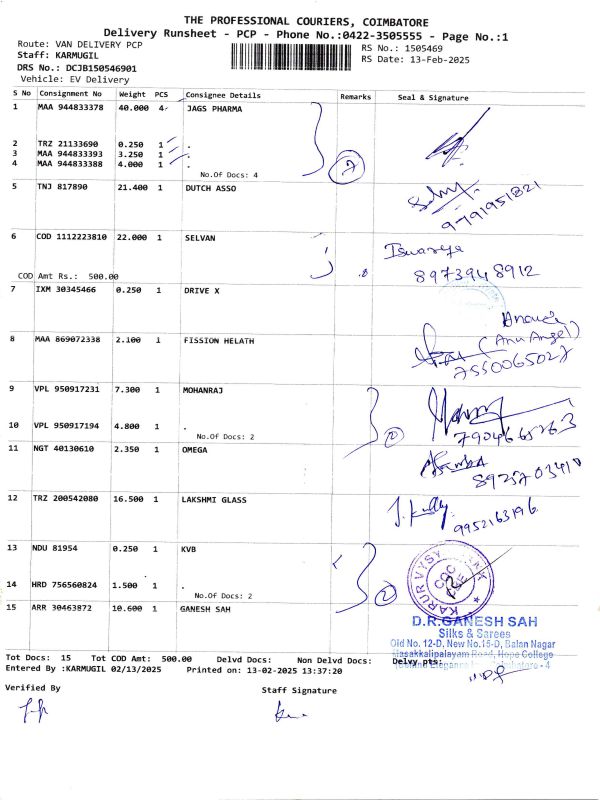 THE PROFESSIONAL COURIERS, COIMBATORE
Delivery Runsheet - PCP - Phone No.:0422-3505555 - Page No.:1
Route: VAN DELIVERY PCP
Staff: KARMUGIL
DRS No.: DCJB150546901
Vehicle: EV Delivery
RS No.: 1505469
RS Date: 13-Feb-2025
S No Consignment No Weight PCS Consignee Details Remarks Seal & Signature
1 MAA 944833378 40.000 4 JAGS PHARMA
2 TRZ 21133690 0.250 1 .
3 MAA 944833393 3.250 1 .
4 MAA 944833388 4.000 1 .
No.Of Docs: 4
5 TNJ 817890 21.400 1 DUTCH ASSO
9791951821
6 COD 1112223810 22.000 1 SELVAN
8973948912
COD Amt Rs.: 500.00
7 IXM 30345466 0.250 1 DRIVE X
(Anu Angel)
8 MAA 869072338 2.100 1 FISSION HELATH
7550065027
9 VPL 950917231 7.300 1 MOHANRAJ
10 VPL 950917194 4.800 1 .
No.Of Docs: 2
7904665263
11 NGT 40130610 2.350 1 OMEGA
8925703410
12 TRZ 200542080 16.500 1 LAKSHMI GLASS
9952163196
13 NDU 81954 0.250 1 KVB
14 HRD 756560824 1.500 1 .
No.Of Docs: 2
2
KARUR VYSYA
15 ARR 30463872 10.600 1 GANESH SAH
D.R.GANESH SAH
Silks & Sarees
Old No. 12-D, New No.15-D, Balan Nagar
Masakkalipalayam Road, Hope College
Coimbatore - 4
Tot Docs: 15 Tot COD Amt: 500.00 Delvd Docs: Non Delvd Docs: Delvy pts:
Entered By :KARMUGIL 02/13/2025 Printed on: 13-02-2025 13:37:20
Verified By
Staff Signature